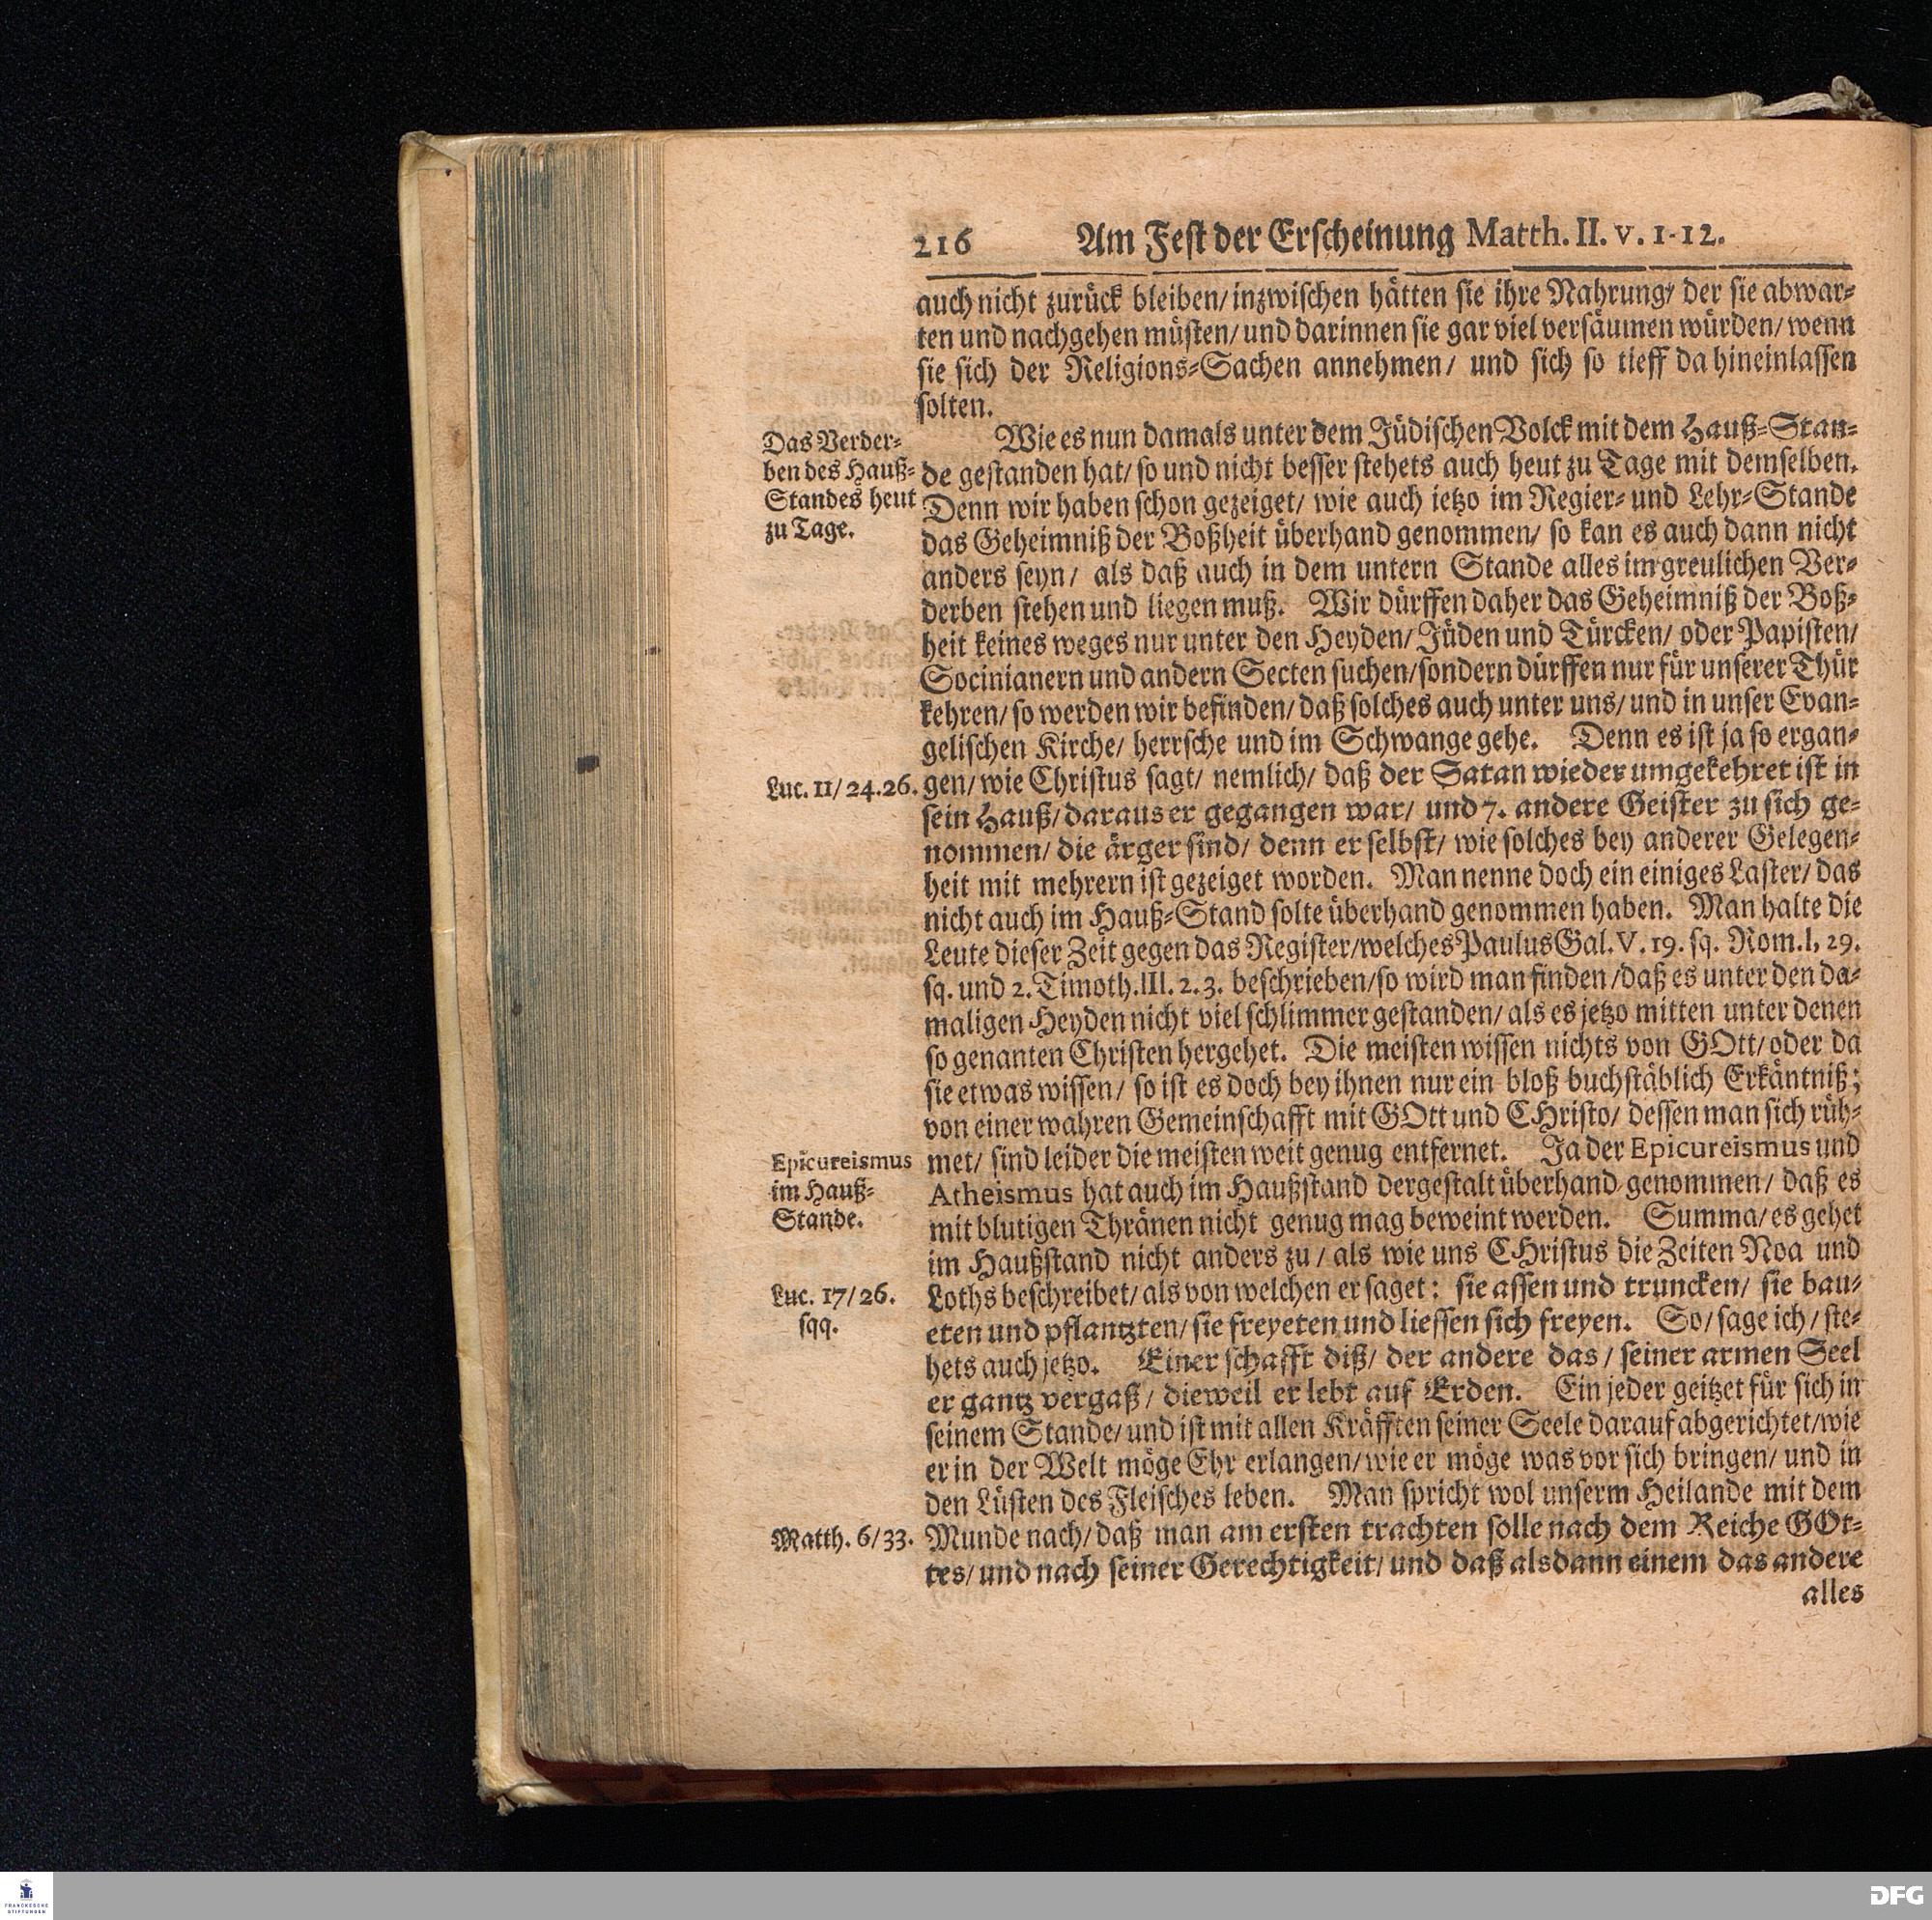 216 Am Fest der Erscheinung Matth. II. v. 1-12.
auch nicht zurück bleiben/ inzwischen hätten sie ihre Nahrung/ der sie abwar-
ten und nachgehen müsten/ und darinnen sie gar viel versäumen würden/ wenn
sie sich der Religions-Sachen annehmen/ und sich so tieff da hineinlassen
solten.
Das Verder-
ben des Hauß-
Standes heut
zu Tage.
Wie es nun damals unter dem Jüdischen Volck mit dem Hauß-Stan-
de gestanden hat/ so und nicht besser stehets auch heut zu Tage mit demselben.
Denn wir haben schon gezeiget/ wie auch ietzo im Regier- und Lehr-Stande
das Geheimniß der Boßheit überhand genommen/ so kan es auch dann nicht
anders seyn/ als daß auch in dem untern Stande alles im greulichen Ver-
derben stehen und liegen muß. Wir dürffen daher das Geheimniß der Boß-
heit keines weges nur unter den Heyden/ Jüden und Türcken/ oder Papisten/
Socinianern und andern Secten suchen/ sondern dürffen nur für unserer Thür
kehren/ so werden wir befinden/ daß solches auch unter uns/ und in unser Evan-
gelischen Kirche/ herrsche und im Schwange gehe. Denn es ist ja so ergan-
Luc. 11/24.26.
gen/ wie Christus sagt/ nemlich/ daß der Satan wieder umgekehret ist in
sein Hauß/ daraus er gegangen war/ und 7. andere Geister zu sich ge-
nommen/ die ärger sind/ denn er selbst/ wie solches bey anderer Gelegen-
heit mit mehrern ist gezeiget worden. Man nenne doch ein einiges Laster/ das
nicht auch im Hauß-Stand solte überhand genommen haben. Man halte die
Leute dieser Zeit gegen das Register/ welches Paulus Gal. V. 19. sq. Rom. I, 29.
sq. und 2. Timoth. III. 2. 3. beschrieben/ so wird man finden/ daß es unter den da-
maligen Heyden nicht viel schlimmer gestanden/ als es jetzo mitten unter denen
so genanten Christen hergehet. Die meisten wissen nichts von GOtt/ oder da
sie etwas wissen/ so ist es doch bey ihnen nur ein bloß buchstäblich Erkäntniß;
von einer wahren Gemeinschafft mit GOtt und CHristo/ dessen man sich rüh-
Epicureismus
im Hauß-
Stande.
met/ sind leider die meisten weit genug entfernet. Ja der Epicureismus und
Atheismus hat auch im Haußstand dergestalt überhand genommen/ daß es
mit blutigen Thränen nicht genug mag beweint werden. Summa/ es gehet
im Haußstand nicht anders zu/ als wie uns CHristus die Zeiten Noa und
Luc. 17/26.
sqq.
Loths beschreibet/ als von welchen er saget: sie assen und truncken/ sie bau-
eten und pflantzten/ sie freyeten und liessen sich freyen. So/ sage ich/ ste-
hets auch jetzo. Einer schafft diß/ der andere das/ seiner armen Seel
er gantz vergaß/ dieweil er lebt auf Erden. Ein jeder geitzet für sich in
seinem Stande/ und ist mit allen Kräfften seiner Seele darauf abgerichtet/ wie
er in der Welt möge Ehr erlangen/ wie er möge was vor sich bringen/ und in
den Lüsten des Fleisches leben. Man spricht wol unserm Heilande mit dem
Matth. 6/33.
Munde nach/ daß man am ersten trachten solle nach dem Reiche GOt-
tes/ und nach seiner Gerechtigkeit/ und daß alsdann einem das andere
alles
FRANCKESCHE
STIFTUNGEN
DFG